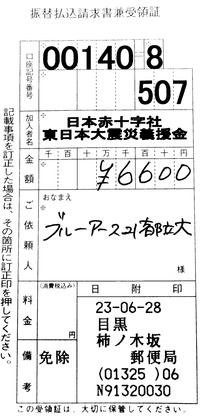 振替払込請求書兼受領証
口座記号番号
00140 8
507
加入者名
日本赤十字社
東日本大震災義援金
金額
千 百 十 万 千 百 十 円
¥6600
ご依頼人
おなまえ
様
料金
(消費税込み)
円
備考
免除
日附印
23-06-28
目黒
柿ノ木坂
郵便局
(01325)06
N91320030
記載事項を訂正した場合は、その箇所に訂正印を押してください。
この受領証は、大切に保管してください。